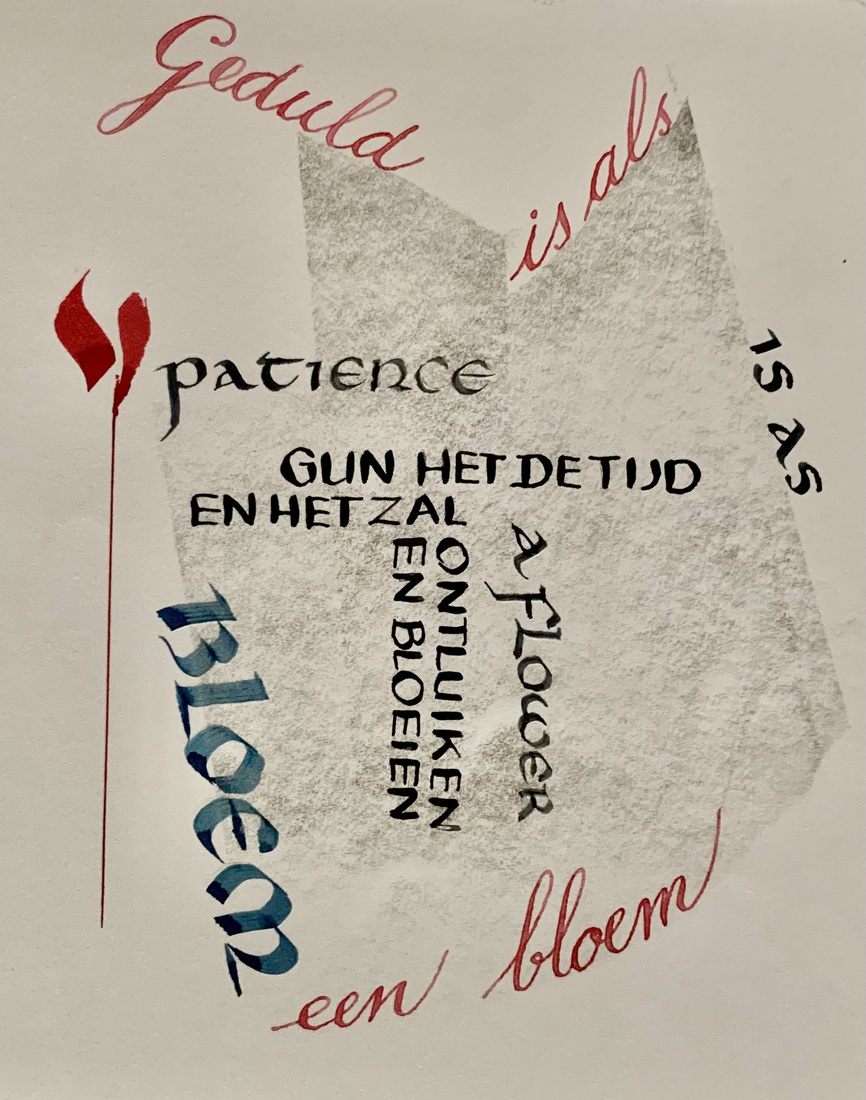 Geduld
is als
patience
is as
GUN HET DE TIJD
EN HET ZAL
ONTLUIKEN
EN BLOEIEN
a flower
BLOEM
een bloem